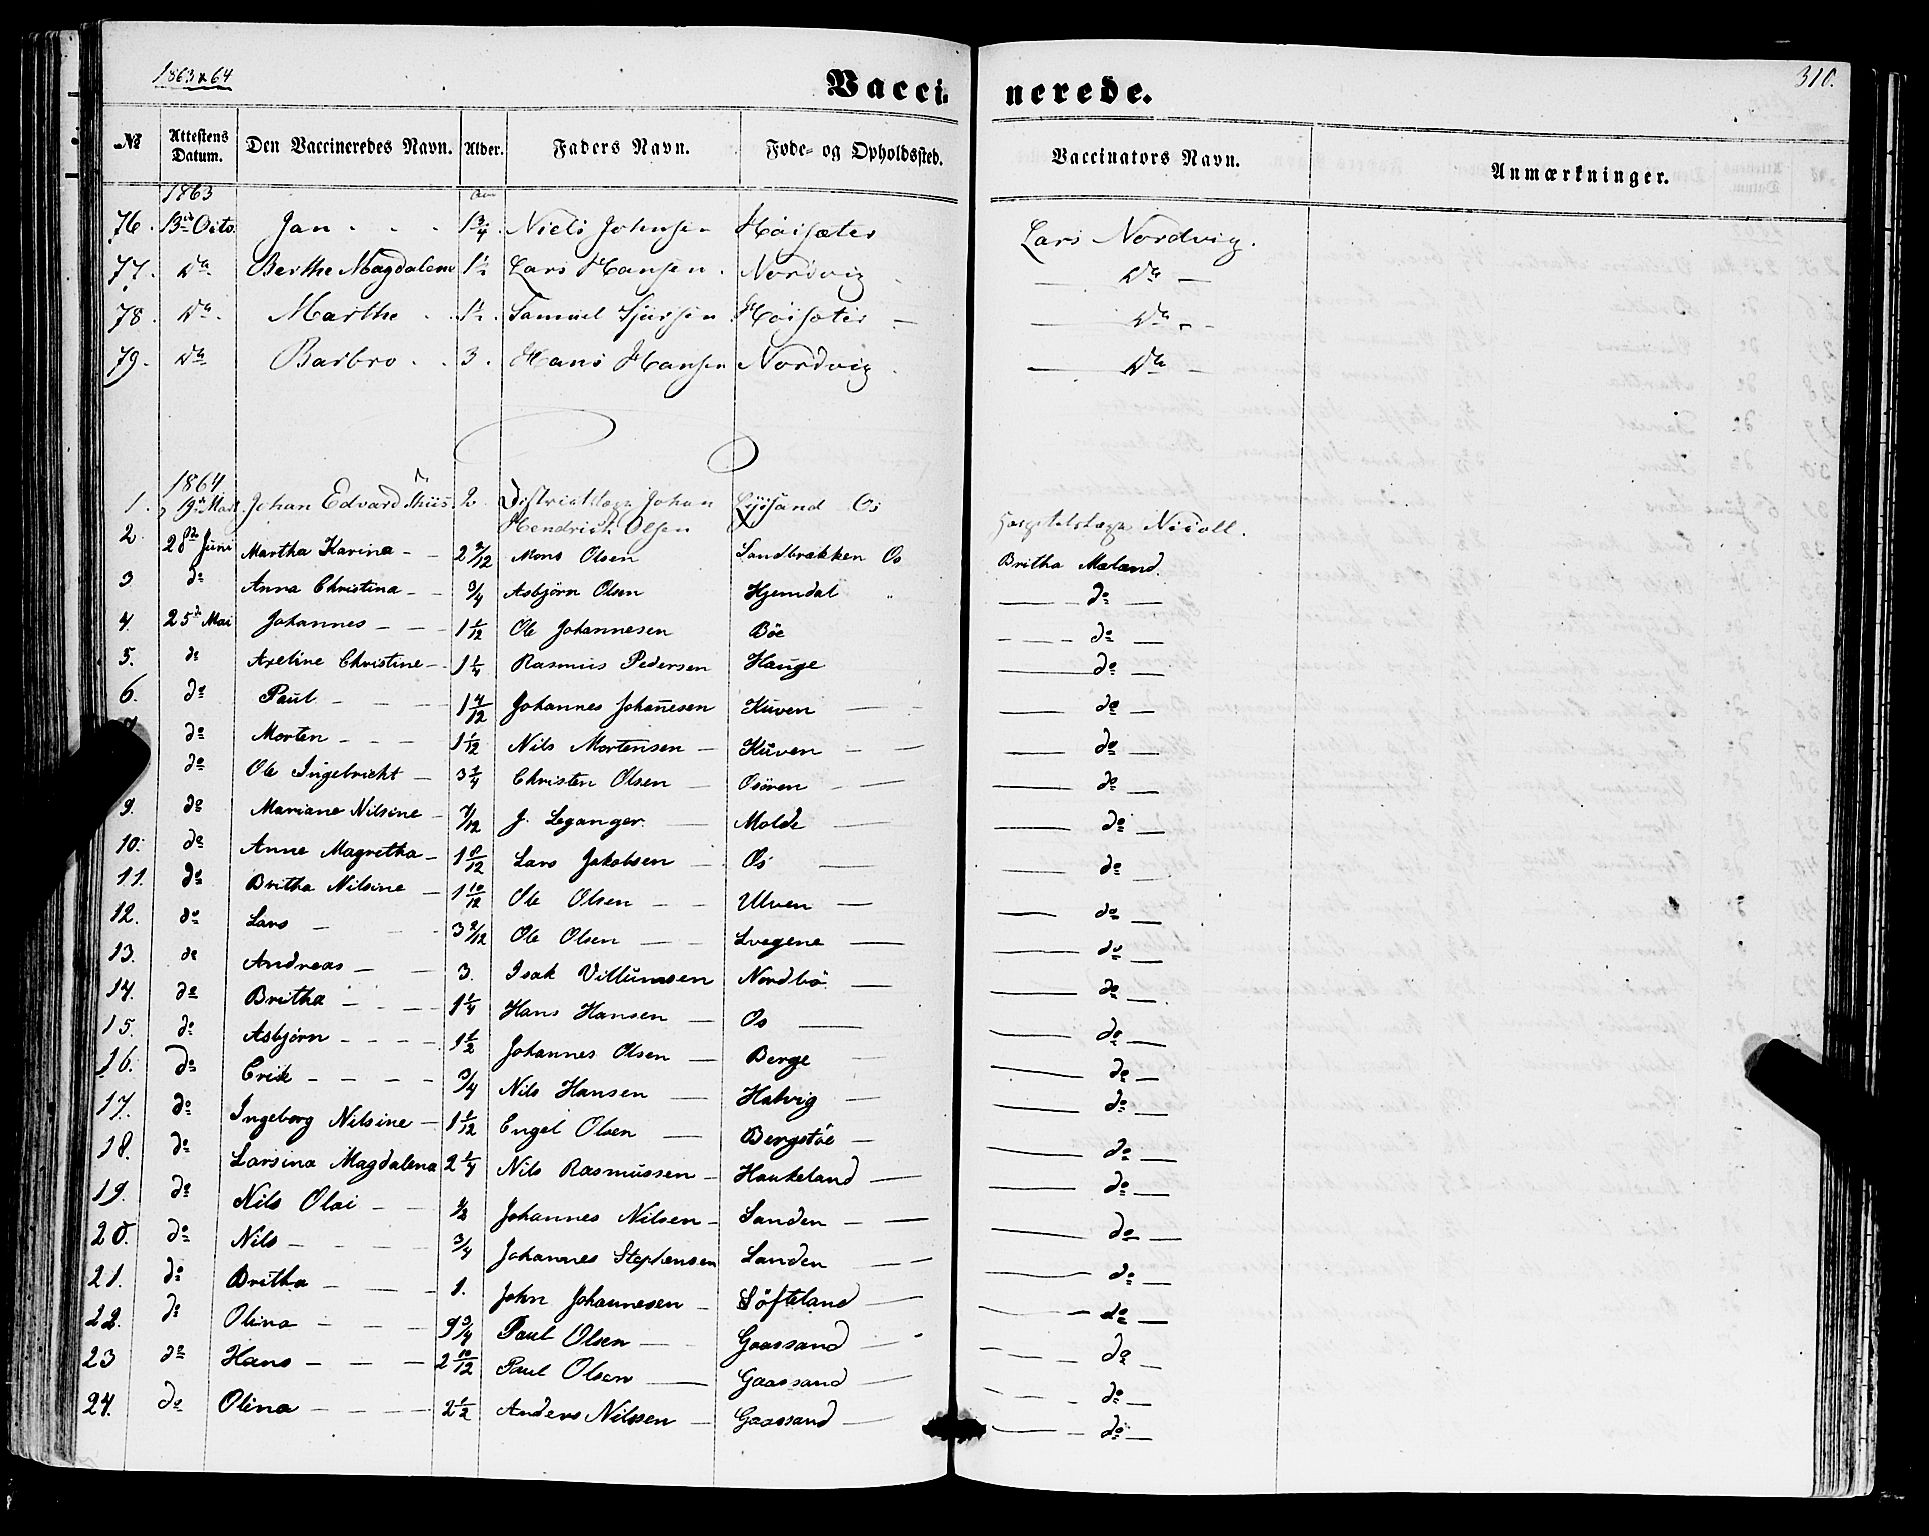 1863 & 64
Vaccinerede.
310.
№ Attestens Datum. Den Vaccineredes Navn. Alder. Faders Navn. Føde- og Opholdssted. Vaccinators Navn. Anmærkninger.
1863
76. 13de Octo. Jan 1 3/4 Niels Johnsen Høisæter Lars Nordvig.
77. Do Berthe Magdalene 1 1/2 Lars Hansen. Nordvig Do
78. Do. Marthe 1 1/2. Samuel Sjursen Høisæter Do
79. Do Barbro 3. Hans Hansen Nordvig Do
1864
1. 19de Johan Edvard Thiis 2 Districtslæge Johan Lysand Os
Hendrich Olsen Hospitalslæge Nicoll.
2. 28de Juni Martha Karina 2 2/12 Mons Olsen Sandbrækken Os Britha Mæland.
3 do Anna Christina 3/4 Asbjørn Olsen Hjemdal do
4. 25de Mai Johannes 1 1/12 Ole Johannesen Bøe do
5. do Axeline Christine 1 1/4 Rasmus Pedersen Hauge do
6. do Paul 1 4/12 Johannes Johanesen Kuven do
do Morten 1 1/12 Nils Mortensen Kuven do
do Ole Ingebricht 3 1/4 Christen Olsen Osøren do
9. do Mariane Nilsine 7/12 J. Leganger Molde do
10. do Anne Magretha 1 8/12 Lars Jakobsen Os do
11. do Britha Nilsine 1 10/12 Ole Olsen Ulven do
12. do Lars 3 2/12 Ole Olsen Lvegene do
13. do Andreas 3. Isak Villumsen Nordbø do
14. do Britha 1 1/4 Hans Hansen Os do
15. do Asbjørn 1 1/2 Johannes Olsen Berge do
16. do Erik 3/4 Nils Hansen Hatvig do
17. do Ingeborg Nilsine 1 1/12 Engel Olsen Bergstøe do
18. do Larsina Magdalena 2 1/4 Nils Rasmussen Haukeland do
19. do Nils Olai 1/2 Johannes Nilsen Sanden do
20. do Nils 3/4 Johannes Stephensen Sanden do
21. do Britha 1. John Johannesen Søfteland do
22. do Olina 9 3/4 Paul Olsen Gaassand do
23 do Hans 2 10/12 Paul Olsen Gaassand do
24. do Olina 2 1/2 Anders Nilssen Gaassand do